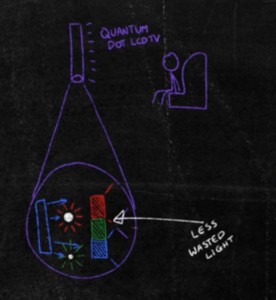 QUANTUM
DOT LCDTV
LESS
WASTED
LIGHT